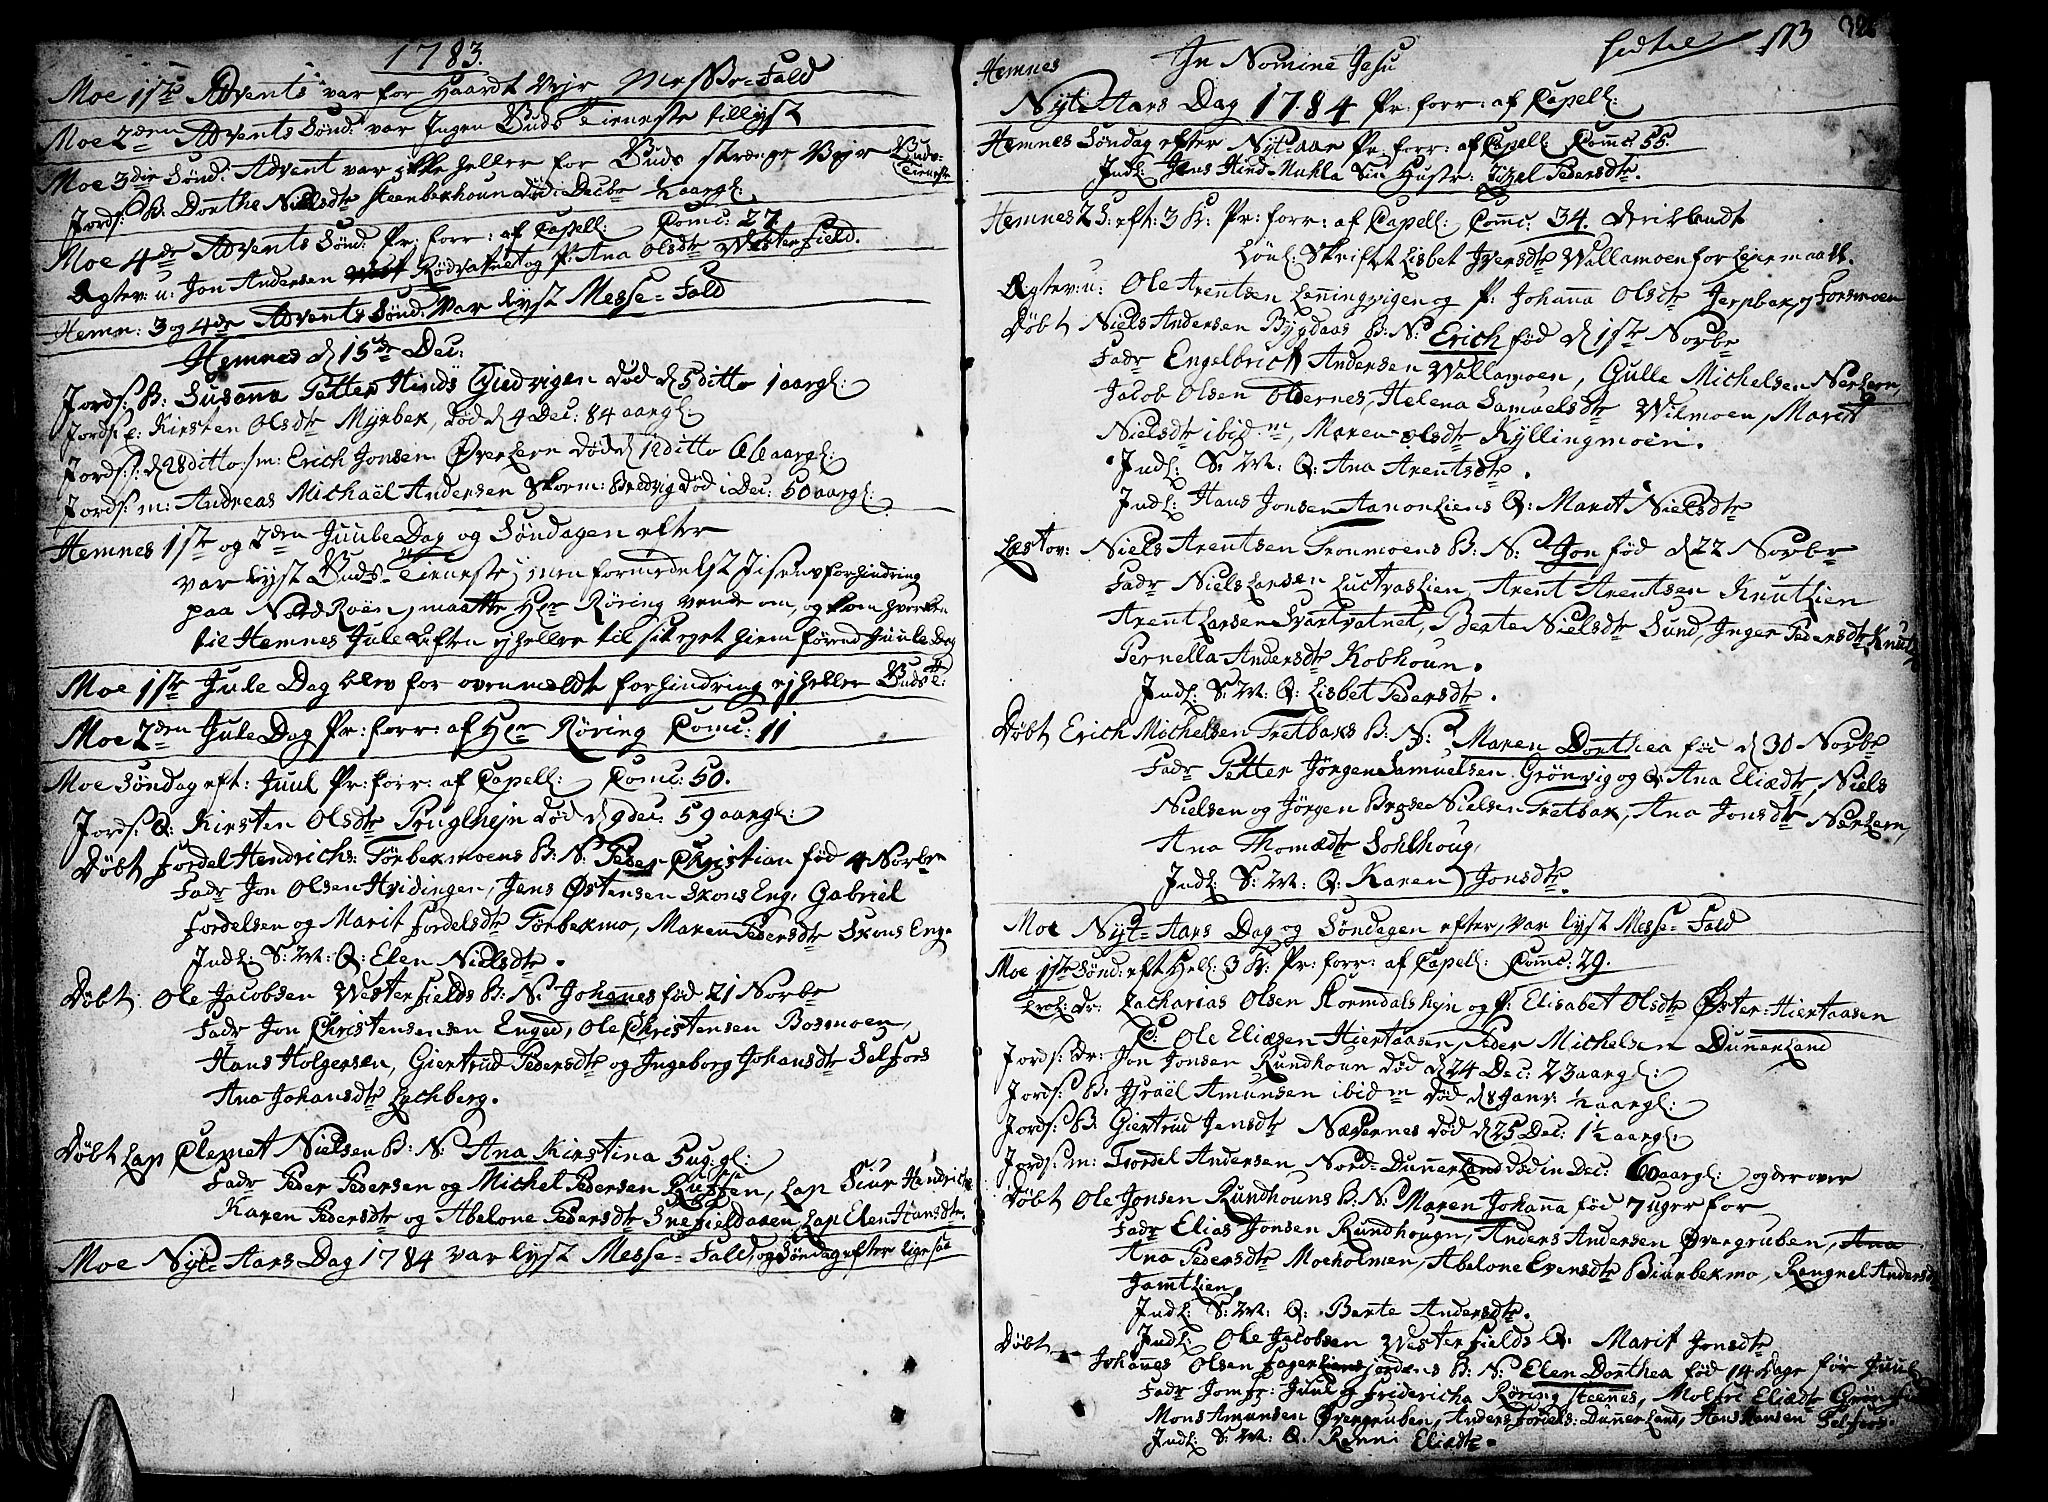 1783.
Moe 1ste Advents var for Haardt Vejr Messe-Fald
Moe 2den Advents Sønd: var Ingen Guds Tieneste tillyst
Moe 3die Sønd: Advent var ikke heller for Guds strænge Vejr Guds-
Tieneste
Jords: B: Dorthe Nielsdtr Steenbekhoun død: Decbr ½ aargl:
Moe 4de Advents Sønd: Pr: forr: af Capell: Comc: 22
Ægtev: u: Jon Andersen Rødvatnet og P: Ana Olsdtr Westerfield.
Hemn: 3 og 4de Advents Sønd: var lyst Messe-Fald
Hemnes d 15de Dec:
Jords: B: Susanna Petter Hinds død d 5 ditto 1 aargl:
Jords: E: Kirsten Olsdtr Myrbek, død d 4 Dec: 84 aargl:
Jords: d 28 ditto: m: Erich Jonsen Øverlern død d 12 ditto 66 aargl:
Jords: m: Andreas Michaël Andersen Skom: Bredvig død i Dec: 50 aargl:
Hemnes 1ste og 2den Juule Dag og Søndagen efter
var lyst Guds-Tieneste; men formedelst Isens forhindring
paa Nord Roën, maatte Her Røring vende om, og kom hverken
til Hemnes Jule Aften ej heller til sit eget hiem førend Juule Dag
Moe 1ste Jule Dag blev for ovenmeldt forhindring ej heller Guds T:
Moe 2den Jule Dag Pr: forr: af Her Røring Comc: 11
Moe Søndag eft: Juul Pr: forr: af Capell: Comc: 50.
Jords: Q: Kirsten Olsdtr Pruglhejn død d 9 dec: 59 aargl:
Døbt Fordel Hendrichs: Tørbekmoens B: N: Peder Christian fød 4 Novbr
Fadr Jon Olsen Hvidingen, Jens Østensen Skons Eng, Gabriel
Fordelsen og Marit Fordelsdtr Tørbekmo, Maren Pedersdtr Skons Eng.
Indl: S: M: Q: Elen Nielsdtr.
Døbt. Ole Jacobsen Westerfields B: N: Johannes fød 21 Novbr
Fadr Jon Christensensen Enged, Ole Christensen Bosmoen,
Hans Holgersen, Giertrud Pedersdtr og Ingeborg Johansdtr Selfors
Ana Johansdtr Lychberg.
Døbt Lap Clemet Nielsen B: N: Ana Kirstina 5 ug: gl:
Fadr Peder Pedersen og Michel Pedersen Russen, Lap Siur Hendrichs
Karen Pedersdtr og Abelone Pedersdtr Snefieldaaen Lap Elen Hansdtr.
Moe Nyt-Aars Dag 1784 var lyst Messe-Fald, og Søndag efter ligesaa
173
Hemnes In Nomine Jesu
Nyt-Aars Dag 1784 Pr: forr: af Capell:
Hemnes Søndag efter Nyt-aar Pr: forr: af Capell: Comc: 55.
Indl: Jens Hind-Mukla sin Hustr: Zizel Pedersdtr.
Hemnes 2 S: eft: 3 K: Pr: forr: af Capell: Comc: 34.
Lønl: Skriftet Lisbet Iversdtr Wallamoen for Lejermaall.
Ægtev: u: Ole Arentsen Leningvigen og P: Johanna Olsdtr Jerpbak, og Forsmoen
Døbt Niels Andersen Bygdaas B: N: Erich fød d 1ste Novbr
Fadr Engelbricht Andersen Wallamoen, Gulle Michelsen Nerlern,
Jacob Olsen Oldernes, Helena Samuelsdtr Wilmoen, Marit
Nielsdtr ibidm, Maren Olsdtr Kyllingmoen.
Indl: S: M: Q: Ana Arentsdtr.
Indl: Hans Jonsen Aanonliens Q: Marit Nielsdtr
Læst ov: Niels Arentsen Tronmoens B: N: Jon fød d 22 Novbr
Fadr Niels Larsen Luctvaslien, Arent Arentsen Knutlien
Arent Larsen Svartvatnet, Berte Nielsdtr Sund, Inger Pedersdtr Knutl
Pernella Andersdtr Kobhoun.
Indl: S: M: Q: Lisbet Pedersdtr.
Døbt Erich Michelsen Tretbaks B: N: Maren Dorthea fød d 30 Novbr
Fadr Petter Jørgen Samuelsen Grønvig og Q: Ana Eliædtr, Niels
Nielsen og Jørgen Brose Nielsen Tretbak, Ana Jonsdtr Nerlern,
Ana Thomædtr Sohlhoug,
Indl: S: M: Q: Karen Jonsdtr.
Moe Nyt-Aars Dag og Søndagen efter, var lyst Messe-Fald
Moe 1ste Sønd: eft Hell: 3 K: Pr: forr: af Capell: Comc: 29.
Trol: Dr: Zacharias Olsen Stormdalshejn og P: Elisabet Olsdtr Øster-Hiertaasen
C: Ole Eliæsen Hiertaasen, Peder Michelsen Dunnerland
Jords: Dr: Jon Jonsen Rundhoun død d 24 Dec: 23 aargl:
Jords: B: Israël Amunsen ibidm død d 8 Janv: ½ aargl:
Jords: B: Giertrud Jensdtr Nævernes død d 25 Dec: 1½ aargl:
Jords: m: Tordel Andersen Nord-Dunnerland død in Dec: 60 aargl: og der over
Døbt Ole Jonsen Rundhouns B: N: Maren Johanna fød 7 uger før
Fadr Elias Jonsen Rundhougn, Anders Andersen Øvergruben, Ana
Ana Pedersdtr Moeholmen, Abelone Evensdtr Biurbekmo, Rengnel Andersd
Jamtlien,
Indl: S: M: Q: Berte Andersdtr.
Indl: Ole Jacobsen Westerfields Q: Marit Jonsdtr
Døbt Johannes Olsen Fagerliens jordens B: N: Elen Dorthea fød 14 Dage før Juul
Fadr Jomfr: Juul og Fridericha Røring Steenes, Molfri Eliædtr Grønfield
Mons Amunsen Øvergruben, Anders Fordels: Dunnerland, Hans Hansen Selfors.
Indl: S: M: Q: Renni Eliædtr.